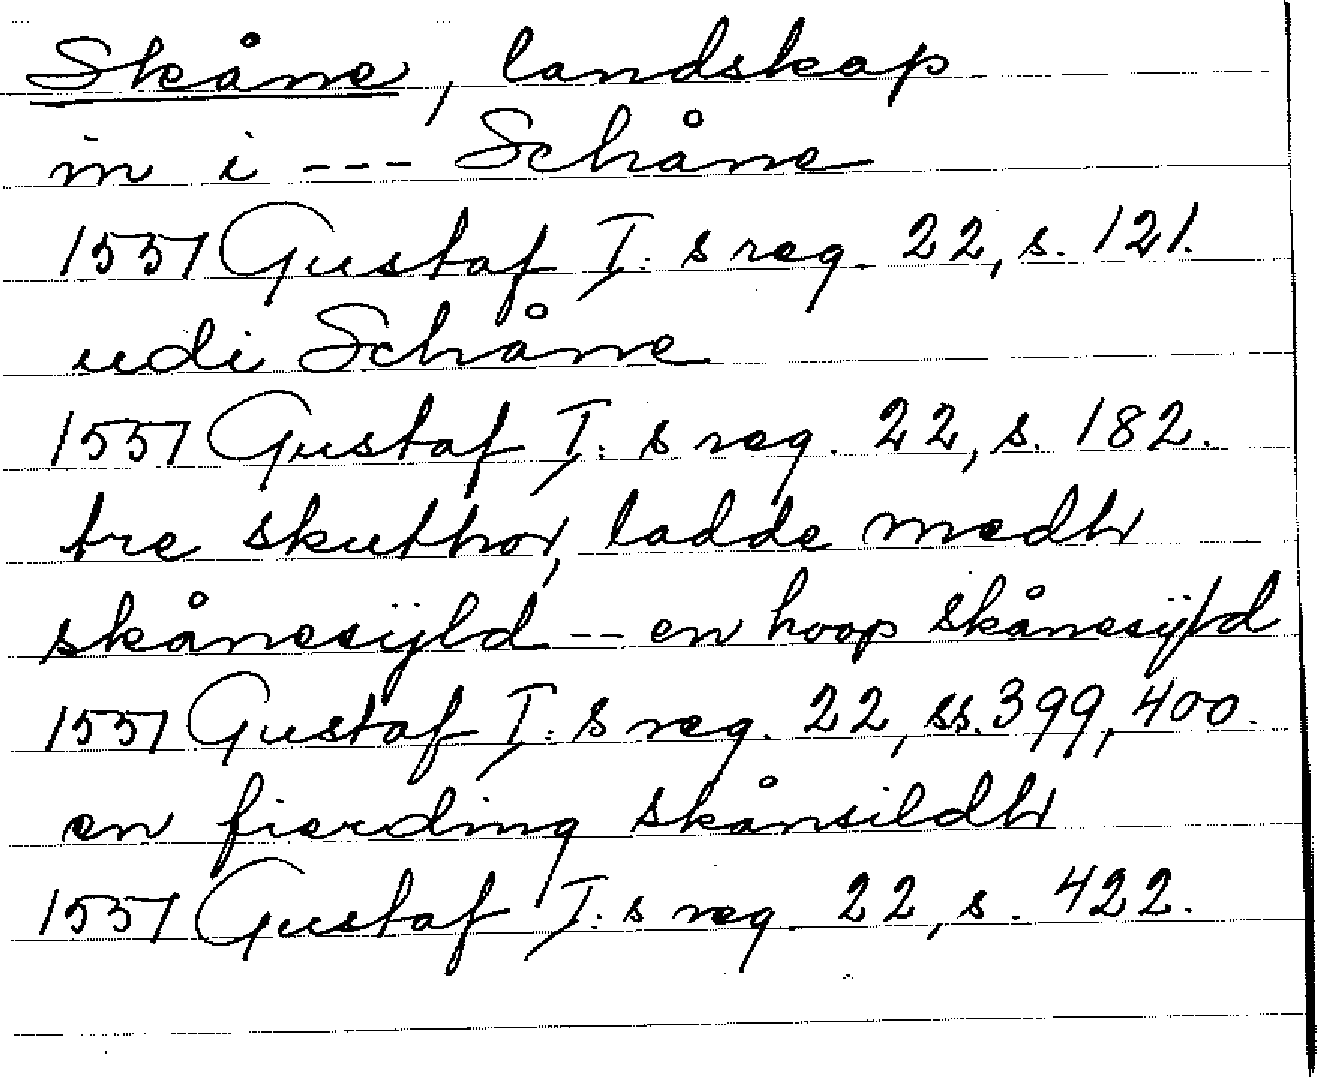 Skåne, landskap
in i --- Schåne
1551 Gustaf I:s reg. 22, s. 121.
udi Schåne
1551 Gustaf I:s reg. 22, s. 182.
tre skuthor, ladde medh
skånesÿld -- en hoop skånesÿld
1551 Gustaf I:s reg. 22, ss. 399, 400.
en fierding skånsildh
1551 Gustaf I:s reg. 22, s. 422.